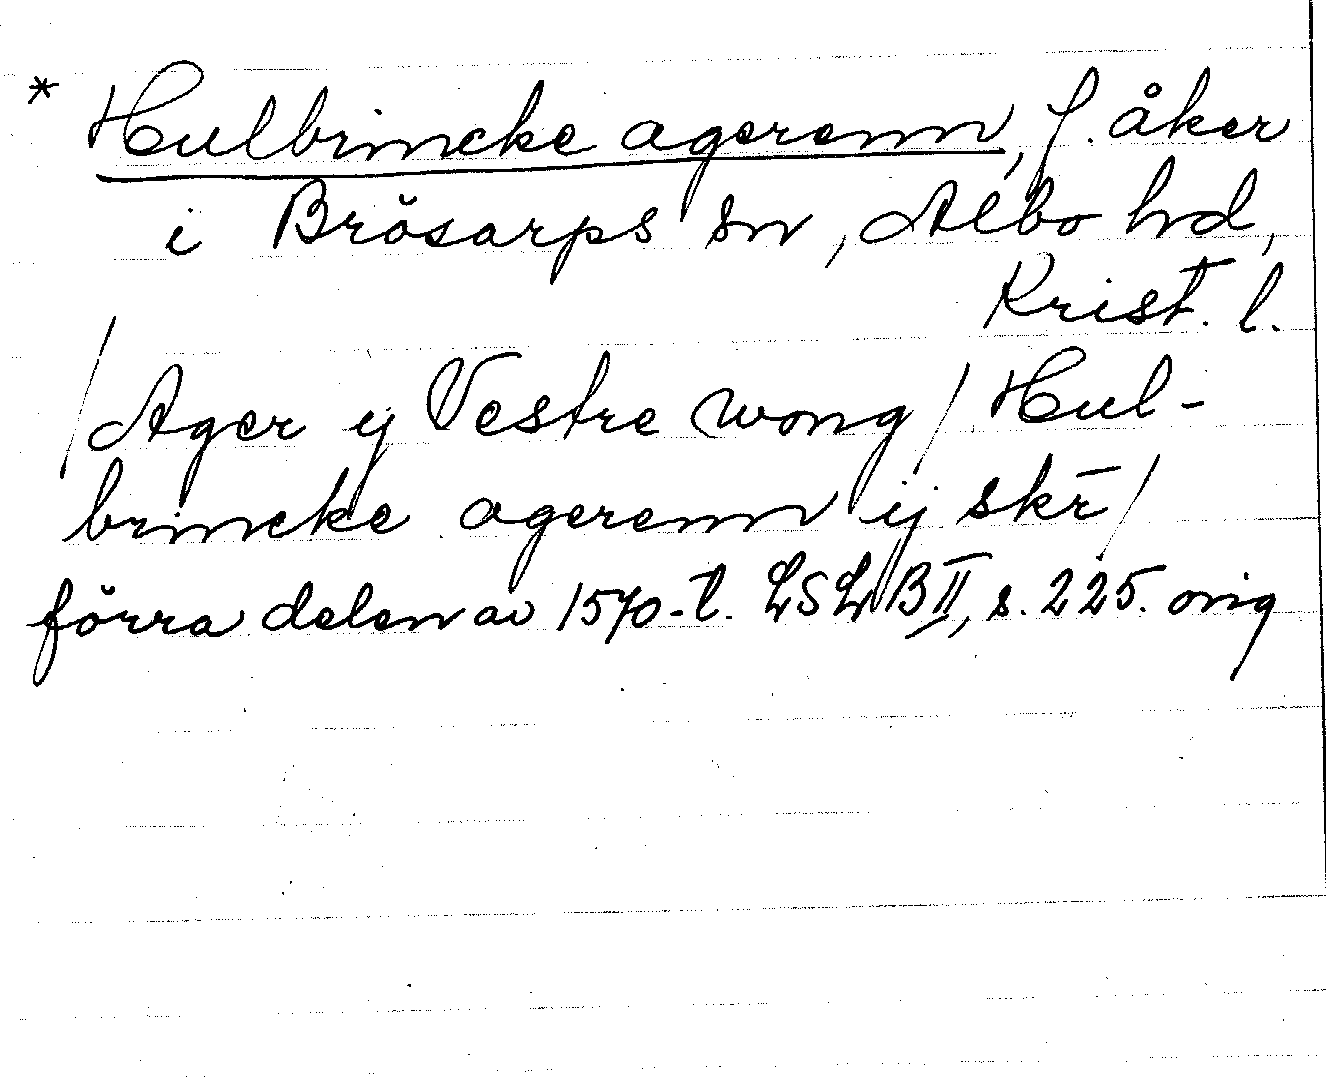 * Hulbrincke agerenn, f. åker
i Brösarps sn, Albo hd,
Krist. l.
/Ager ij Vestre wong/ Hul-
brincke agerenn ij skr̄/
förra delen av 1570-t. LSLB II, s. 225. orig